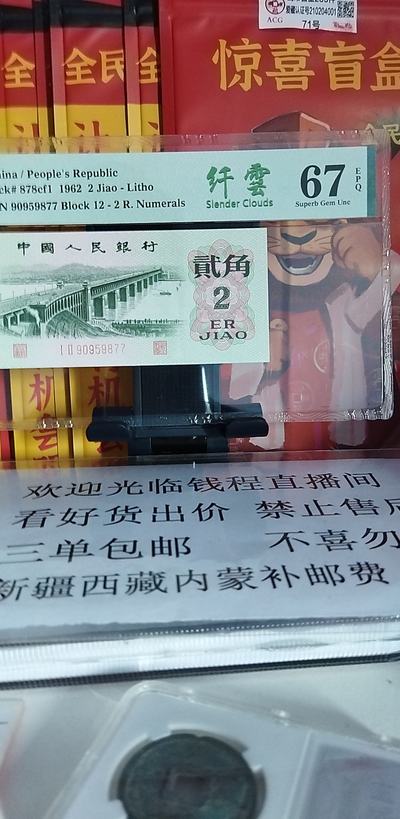 ACG
71号
惊喜盲盒
全民
全民
ina / People's Republic
ck# 878cf1 1962 2 Jiao - Litho
N 90959877 Block 12 - 2 R. Numerals
纤雲
Slender Clouds
67
EPQ
Superb Gem Unc
中國人民銀行
貳角
2
ER
JIAO
III 90959877
机会
机会
欢迎光临钱程直播间
看好货出价 禁止售后
三单包邮 不喜勿
新疆西藏内蒙补邮费